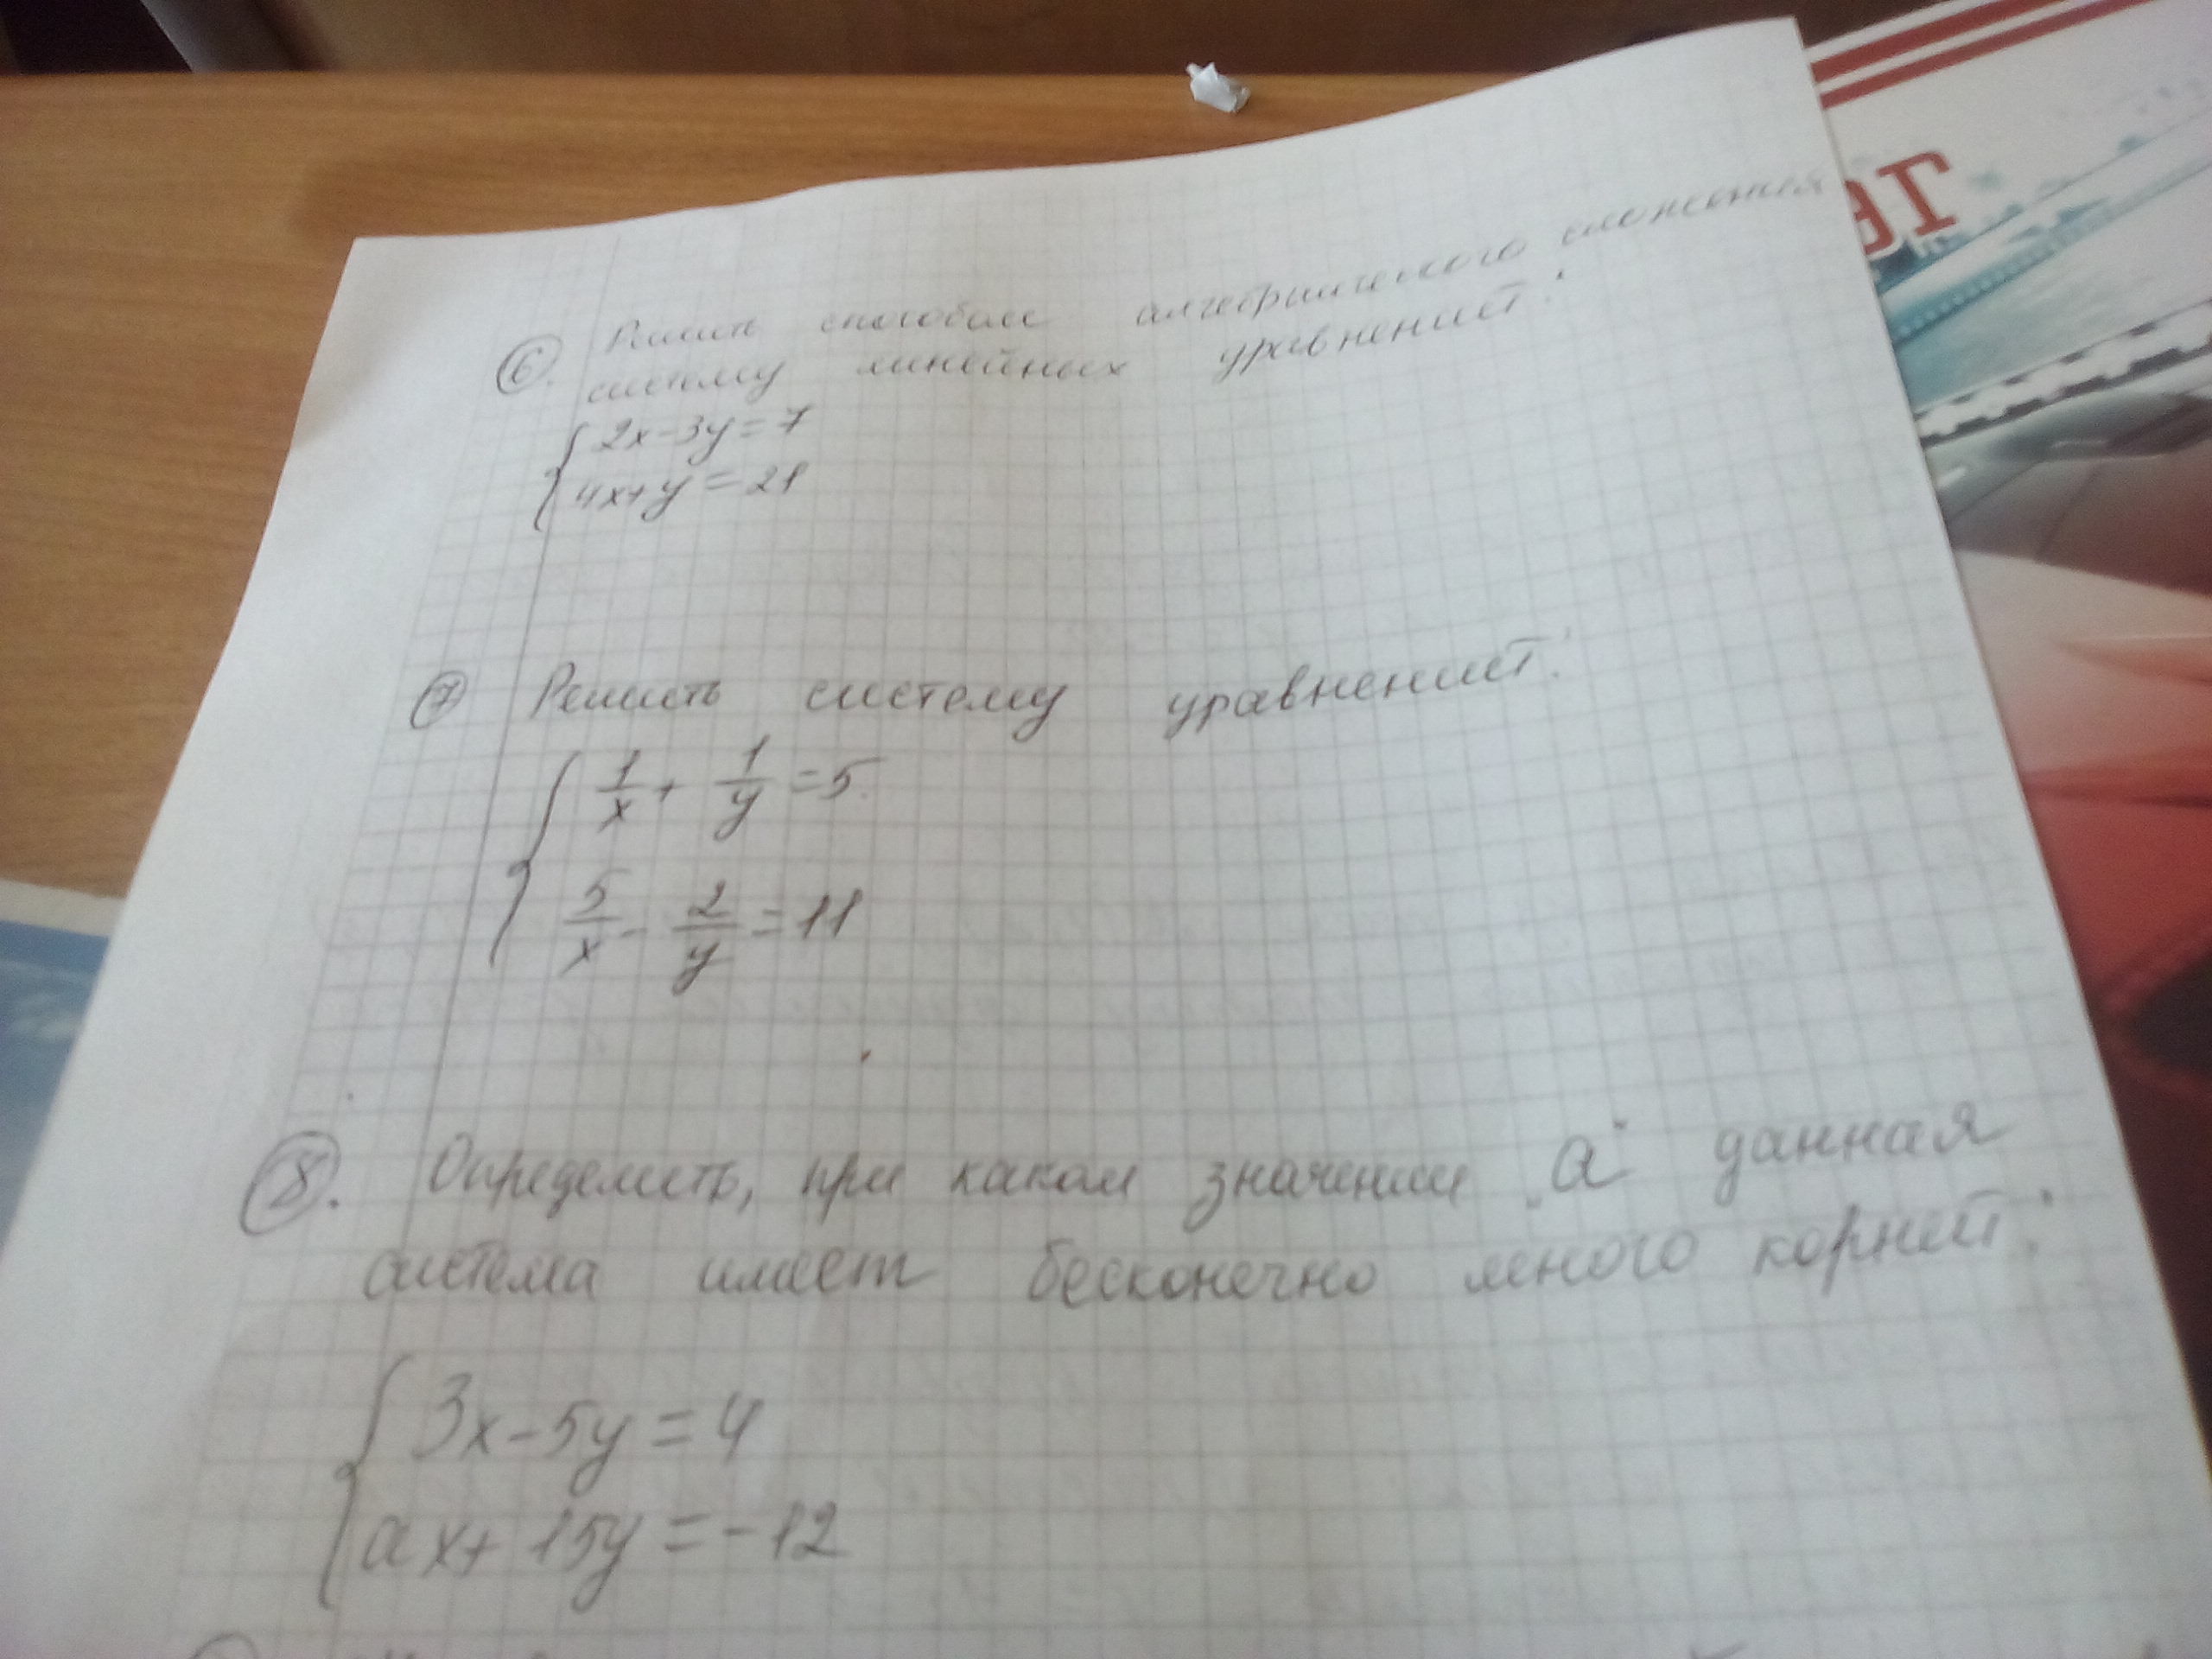 6. Решить способом алгебраического сложения
систему линейных уравнений:
{ 2x-3y=7
4x+y=21
7 Решить систему уравнений:
{ 1/x + 1/y = 5
5/x - 2/y = 11
8. Определить, при каком значении „a“ данная
система имеет бесконечно много корней:
{ 3x-5y=4
ax+15y=-12